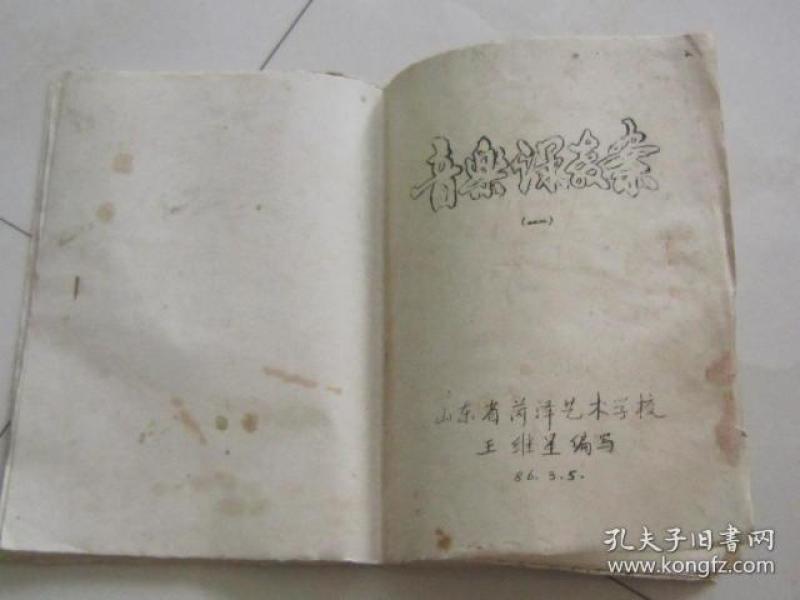 音樂课教案
(一)
山东省菏泽艺术学校
王继星编写
86.3.5.
孔夫子旧書网
www.kongfz.com